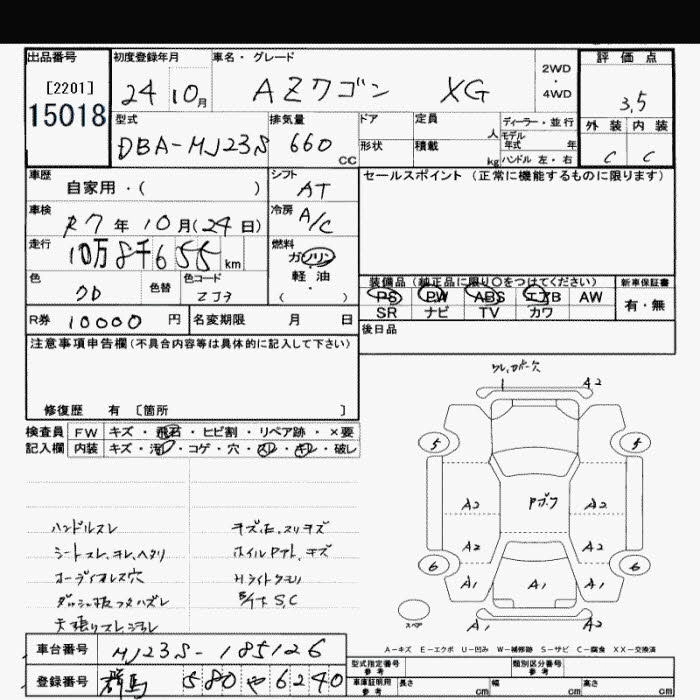 出品番号 [2201] 15018
初度登録年月 24 10月
車名・グレード AZワゴン XG
2WD・4WD
評価点 3.5
外装 C 内装 C
型式 DBA-MJ23S
排気量 660 CC
ドア 形状
定員 人
積載 kg
ディーラー・並行
モデル年式 年
ハンドル 左・右
車歴 自家用・( )
シフト AT
セールスポイント (正常に機能するものに限ります)
車検 R7年10月(24日)
冷房 A/C
走行 10万8千655km
燃料 ガソリン・軽油・( )
色 クロ 色替 色コード ZJ3
装備品 (純正品に限り○をつけてください)
新車保証書 有・無
PS PW ABS エアB AW
SR ナビ TV カワ
R券 10000円 名変期限 月 日
後日品
注意事項申告欄(不具合内容等は具体的に記入して下さい)
修復歴 有 [箇所 ]
検査員記入欄
FW キズ・飛石・ヒビ割・リペア跡・×要
内装 キズ・汚レ・コゲ・穴・スレ・キレ・破レ
ハンドルスレ
シートスレ、キレ、ヘタリ
オーディオレス穴
天張りスレ、シヨレ
キズ、凹、スリキズ
ホイルPアト、キズ
Hライトクモリ
1 A2
5 5
A2 Pボケ A2
A2 A2
6 6
A1 A1 A1
スペア A1 A2
A-キズ E-エクボ U-凹み W-補修跡 S-サビ C-腐食 XX-交換済
車台番号 MJ23S-185126
登録番号 群馬 580 や 6240
型式指定番号 参考
類別区分番号 参考
車庫証明用 参考
長さ cm 幅 cm 高さ cm